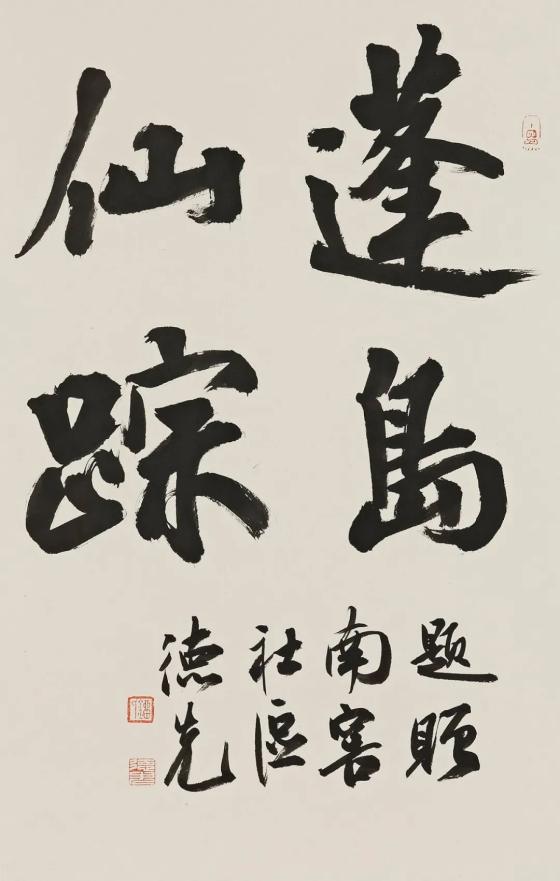 蓬島
仙踪
題賜
南窖
社區
德先